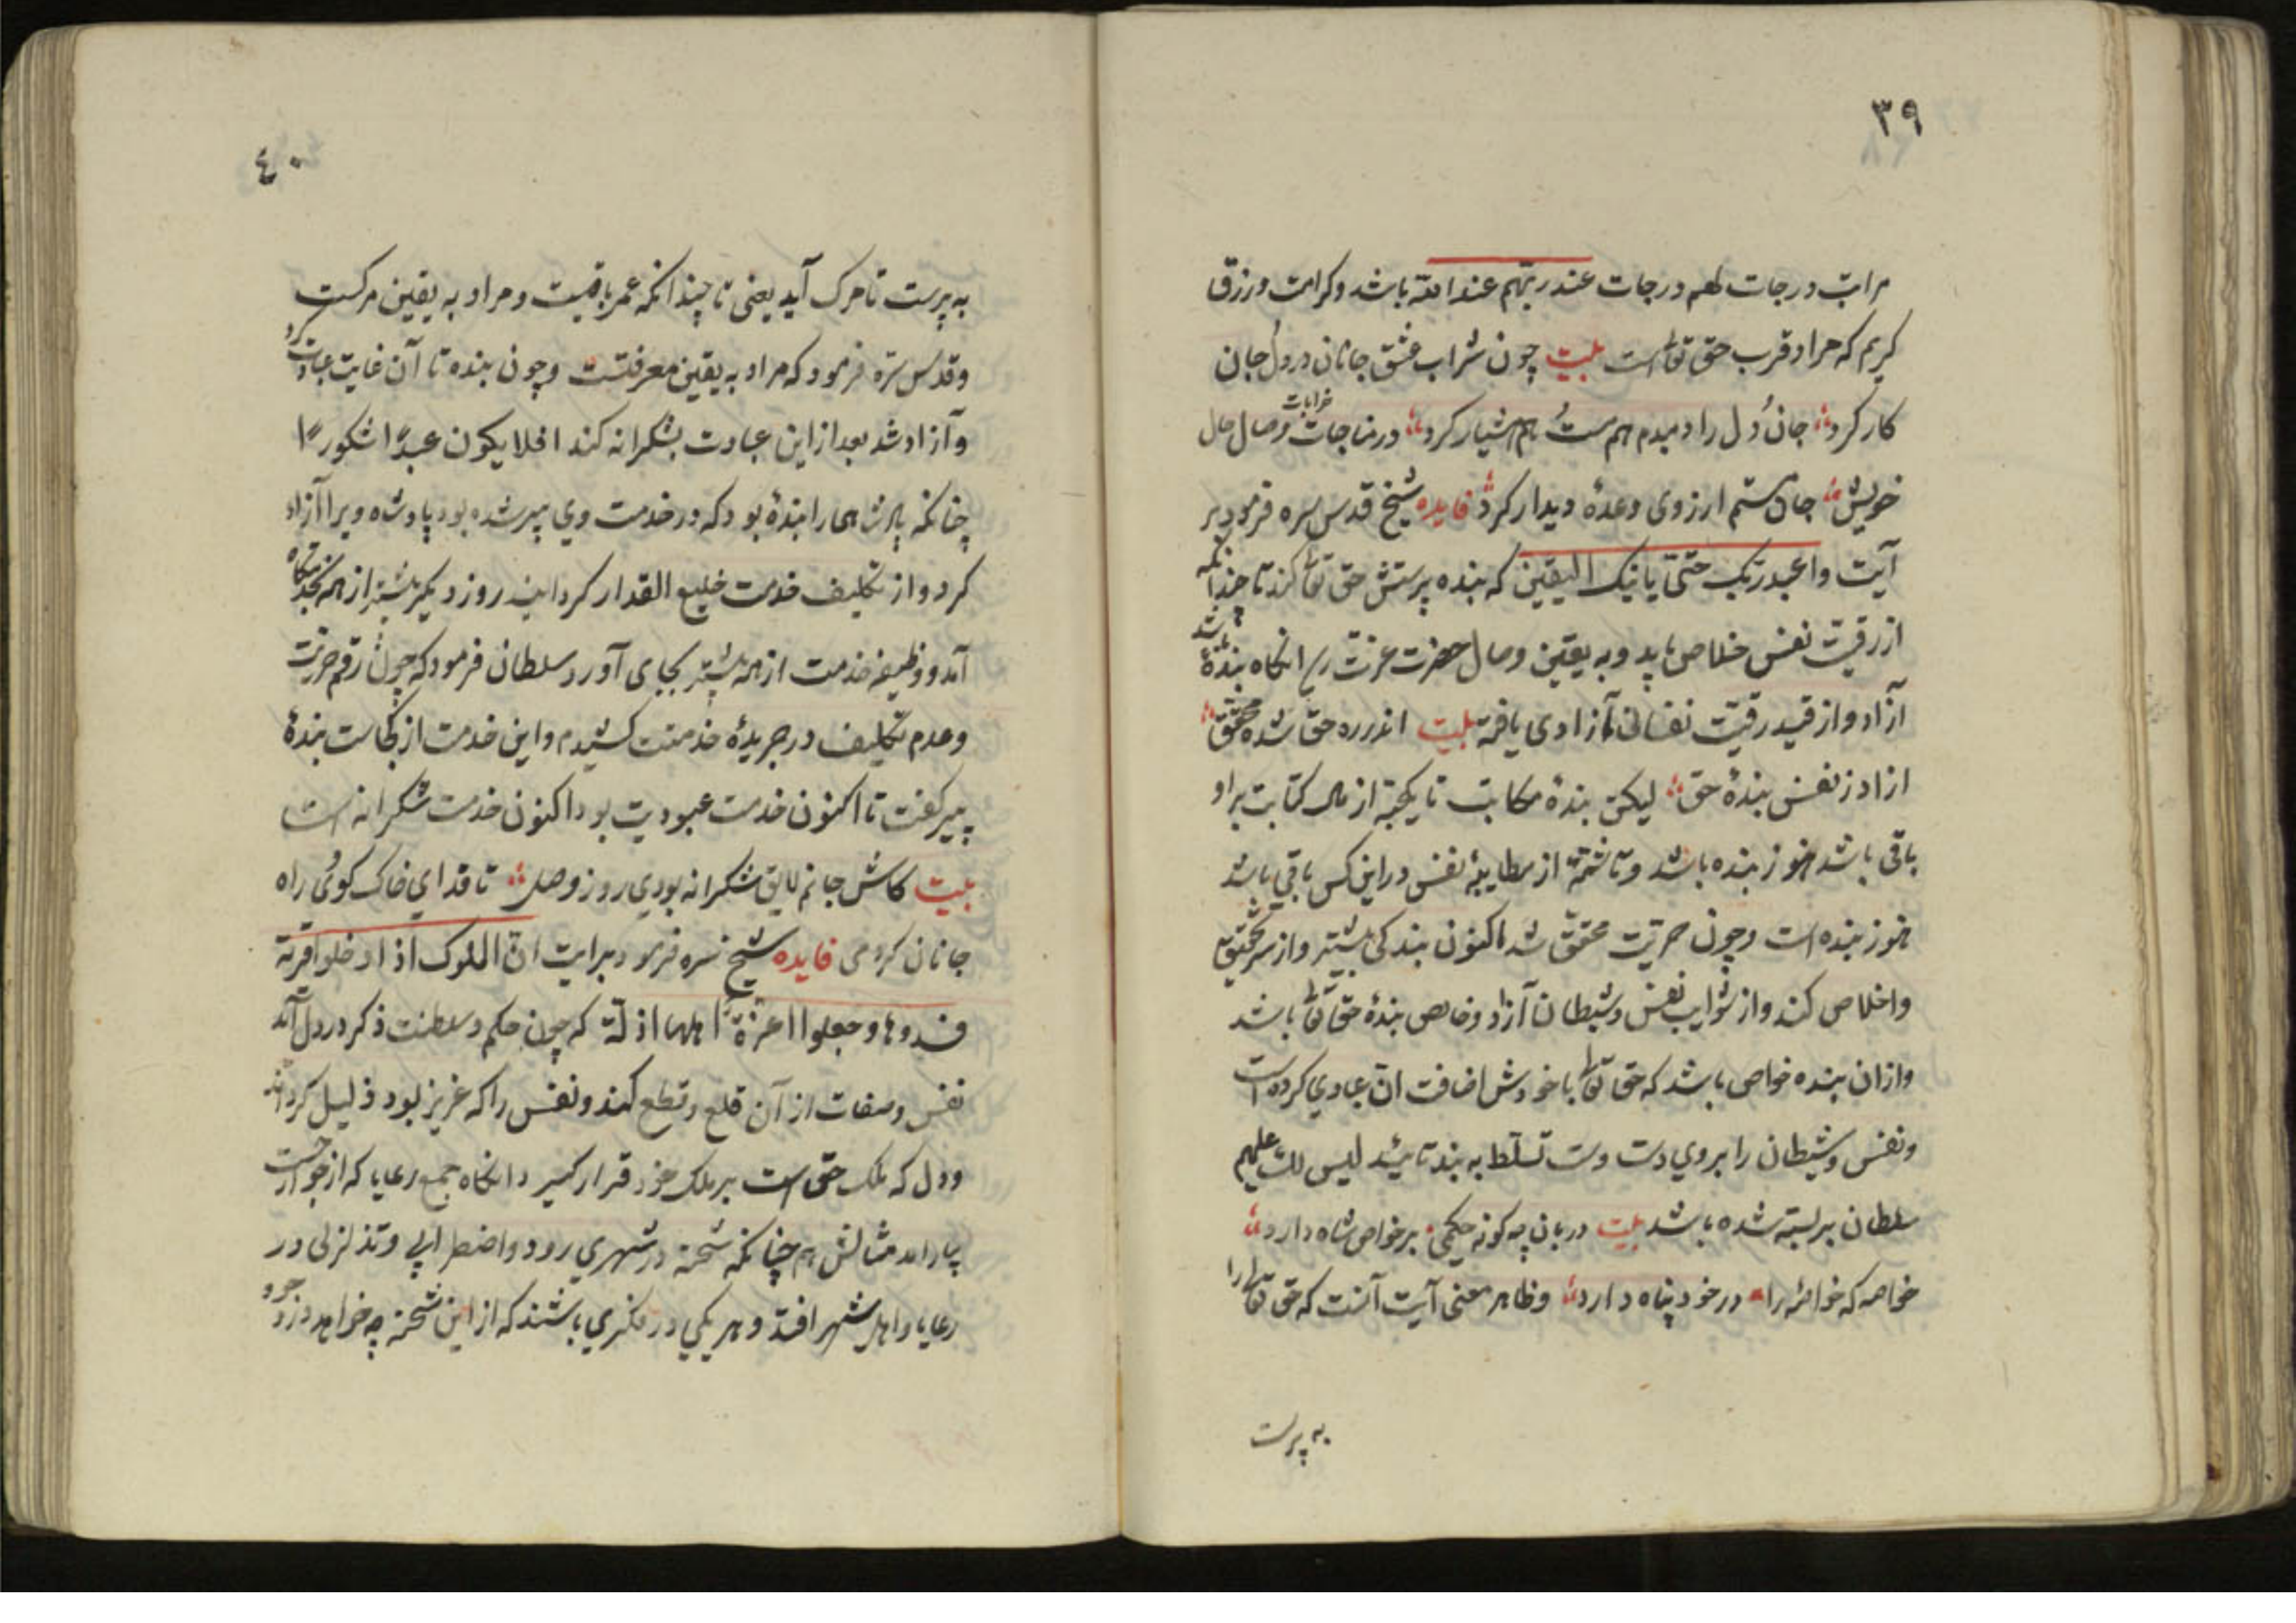 ٣٩
مراتب درجات لهم درجات عند ربهم عند الله باشد وکرامت ورزق
کریم که مراد قرب حق تعالی است بیت چون شراب عشق جانان در دل جان
کار کرد جان ودل را دمبدم هم مست هم هشیار کرد در مناجات خرابات وصال حال
خویش جان مستم ارزوی وعدهٔ دیدار کرد فایده شیخ قدس سره فرمود بر
آیت واعبد ربک حتی یاتیک الیقین که بنده پرستش حق تعالی کند تا چندانکه
از رقیت نفس خلاص یابد وبه یقین وصال حضرت عزت رسد انکاه بندهٔ باشد
آزاد واز قید رقیت نفسانی آزادی یافته بیت اندر ره حق شده محقق
ازاد ز نفس بندهٔ حق لیکن بندهٔ مکاتب تا یکحبه از مال کتابت بر او
باقی باشد هنوز بنده باشد وتا شمهٔ از مطایبهٔ نفس در این کس باقی باشد
هنوز بنده است وچون حریت محقق شد اکنون بندکی بیشتر واز سر تحقیق
واخلاص کند واز شوایب نفس وشیطان آزاد وخالص بندهٔ حق تعالی باشد
وازان بنده خواص باشد که حق تعالی با خودش اضافت ان عبادي کرده است
ونفس وشیطان را بروي دست تسلط به بندتا لیس لک علیهم
سلطان بر بسته شده باشد بیت دربان چه کونه حکمی بر خواص شاه دارد
خواصه که خواه را در خود پناه دارد وظاهر معنی آیت آنست که حق تعالی را
به پرست
٤٠
به پرست تا مرک آید یعنی تا چندانکه عمر باقیست ومراد به یقین مرکست
وقدس سره فرمود که مراد به یقین معرفتست وچون بنده تا آن غایت عبادت کرد
وآزاد شد بعد از این عبادت بشکرانه کند افلا یکون عبدًا شکورًا
چنانکه پادشاهی را بندهٔ بود که در خدمت وي پیر شده بود پادشاه ویرا آزاد
کرد واز تکلیف خدمت خلیع القدار کردانید روز دیکر بیشتر از همه بخدمتکاه
آمد ووظیفه خدمت از همه بیشتر بجای آورد سلطان فرمود که چون رقم حریت
وعدم تکلیف در جریدهٔ خدمتت کشیدم واین خدمت از کجاست بندهٔ
پیر کفت تا اکنون خدمت عبودیت بود اکنون خدمت شکرانه است
بیت کاش جانم لایق شکرانه بودي روز وصل تا فداي خاک کوی راه
جانان کردمی فایده شیخ سره فرمود بر ایت ان الملوک اذا دخلوا قریة
فسدوها وجعلوا اعزة اهلها اذلة که چون حکم وسلطنت ذکر در دل آید
نفس وصفات از آن قلع وقطع کند ونفس را که عزیز بود ذلیل کرداند
ودل که ملک حق است بر ملک خود قرار کیرد وانکاه جمع رعایا که از جوارحست
بیارامد مثالش هم چنانکه شحنهٔ در شهري رود واضطرابي وتذلزلی در
رعایا واهل شهر افتد وهر یکي در فکري باشند که از این شحنه چه خواهد دزد